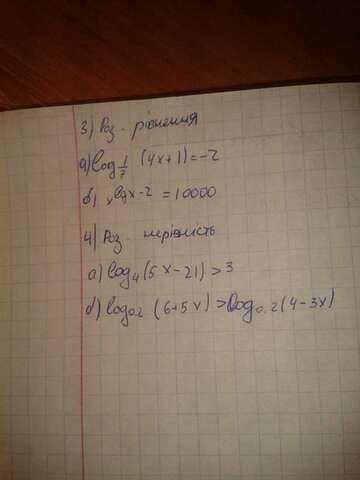 3) Роз. рівнення
а) log 1/7 (4x+1)=-2
б) x lgx-2 = 10000
4) Роз. нерівність
а) log4(5x-21)>3
б) log0.2 (6+5x)>log0.2(4-3x)